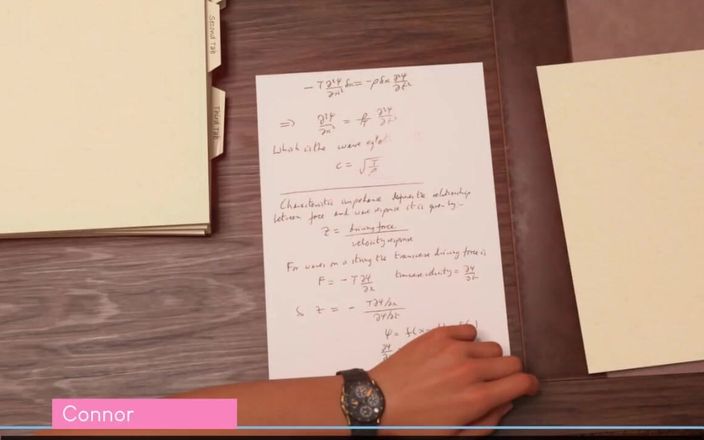 Second Tab
Third Tab
-T ∂²Ψ/∂x² δx = -ρ δx ∂²Ψ/∂t²
=> ∂²Ψ/∂x² = ρ/T ∂²Ψ/∂t²
Which is the wave
c = √(T/ρ)
Characteristic impedance the relationship
between force and wave response it is given by -
Z = driving force / velocity response
For waves on a string the transverse driving force is
F = -T ∂Ψ/∂x transverse velocity = ∂Ψ/∂t
So Z = - T ∂Ψ/∂x / ∂Ψ/∂t
Ψ = f(x
Connor